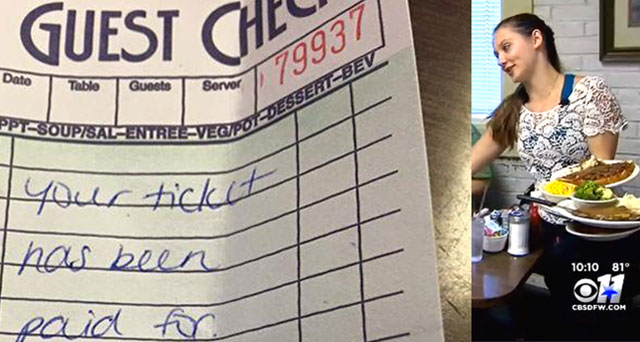 GUEST CHEC
79937
Date Table Guests Server
PPT-SOUP/SAL-ENTREE-VEG/POT-DESSERT-BEV
your ticket
has been
paid for.
10:10 81°
CBS 11
CBSDFW.COM